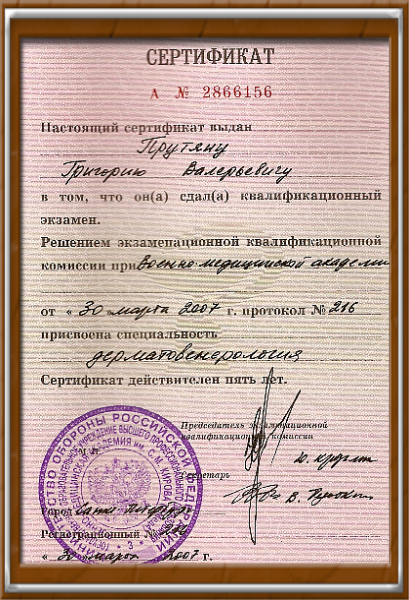 СЕРТИФИКАТ
А № 2866156
Настоящий сертификат выдан
Прутяну
Григорию Валерьевичу
в том, что он(а) сдал(а) квалификационный
экзамен.
Решением экзаменационной квалификационной
комиссии при Военно-медицинской академии
от « 30 марта 2007 г. протокол № 216
присвоена специальность
дерматовенерология
Сертификат действителен пять лет.
Председатель экзаменационной
квалификационной комиссии
Секретарь
Город Санкт-Петербург
Регистрационный №
« 30 марта 2007 г.